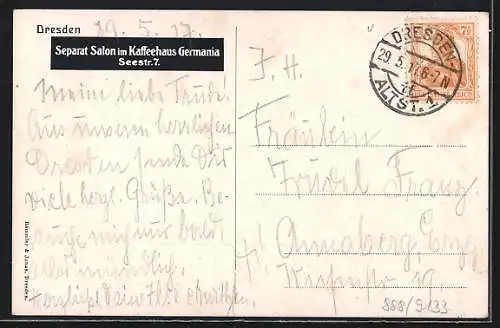 Dresden
29. 5. 17.
Separat Salon im Kaffeehaus Germania
Seestr. 7.
Meine liebe Trude.
Aus unseren herrlichen
Dresden sende Dir
viele herzl. Grüße. Be-
suche mich nur bald,
alles mündlich.
Herzlichst Deine Ilse
DRESDEN-
29.5.17.6-7N
ALTST. 1
7½
Fräulein
Trudel Franz
Annaberg, Erzg.
19.
888/9133